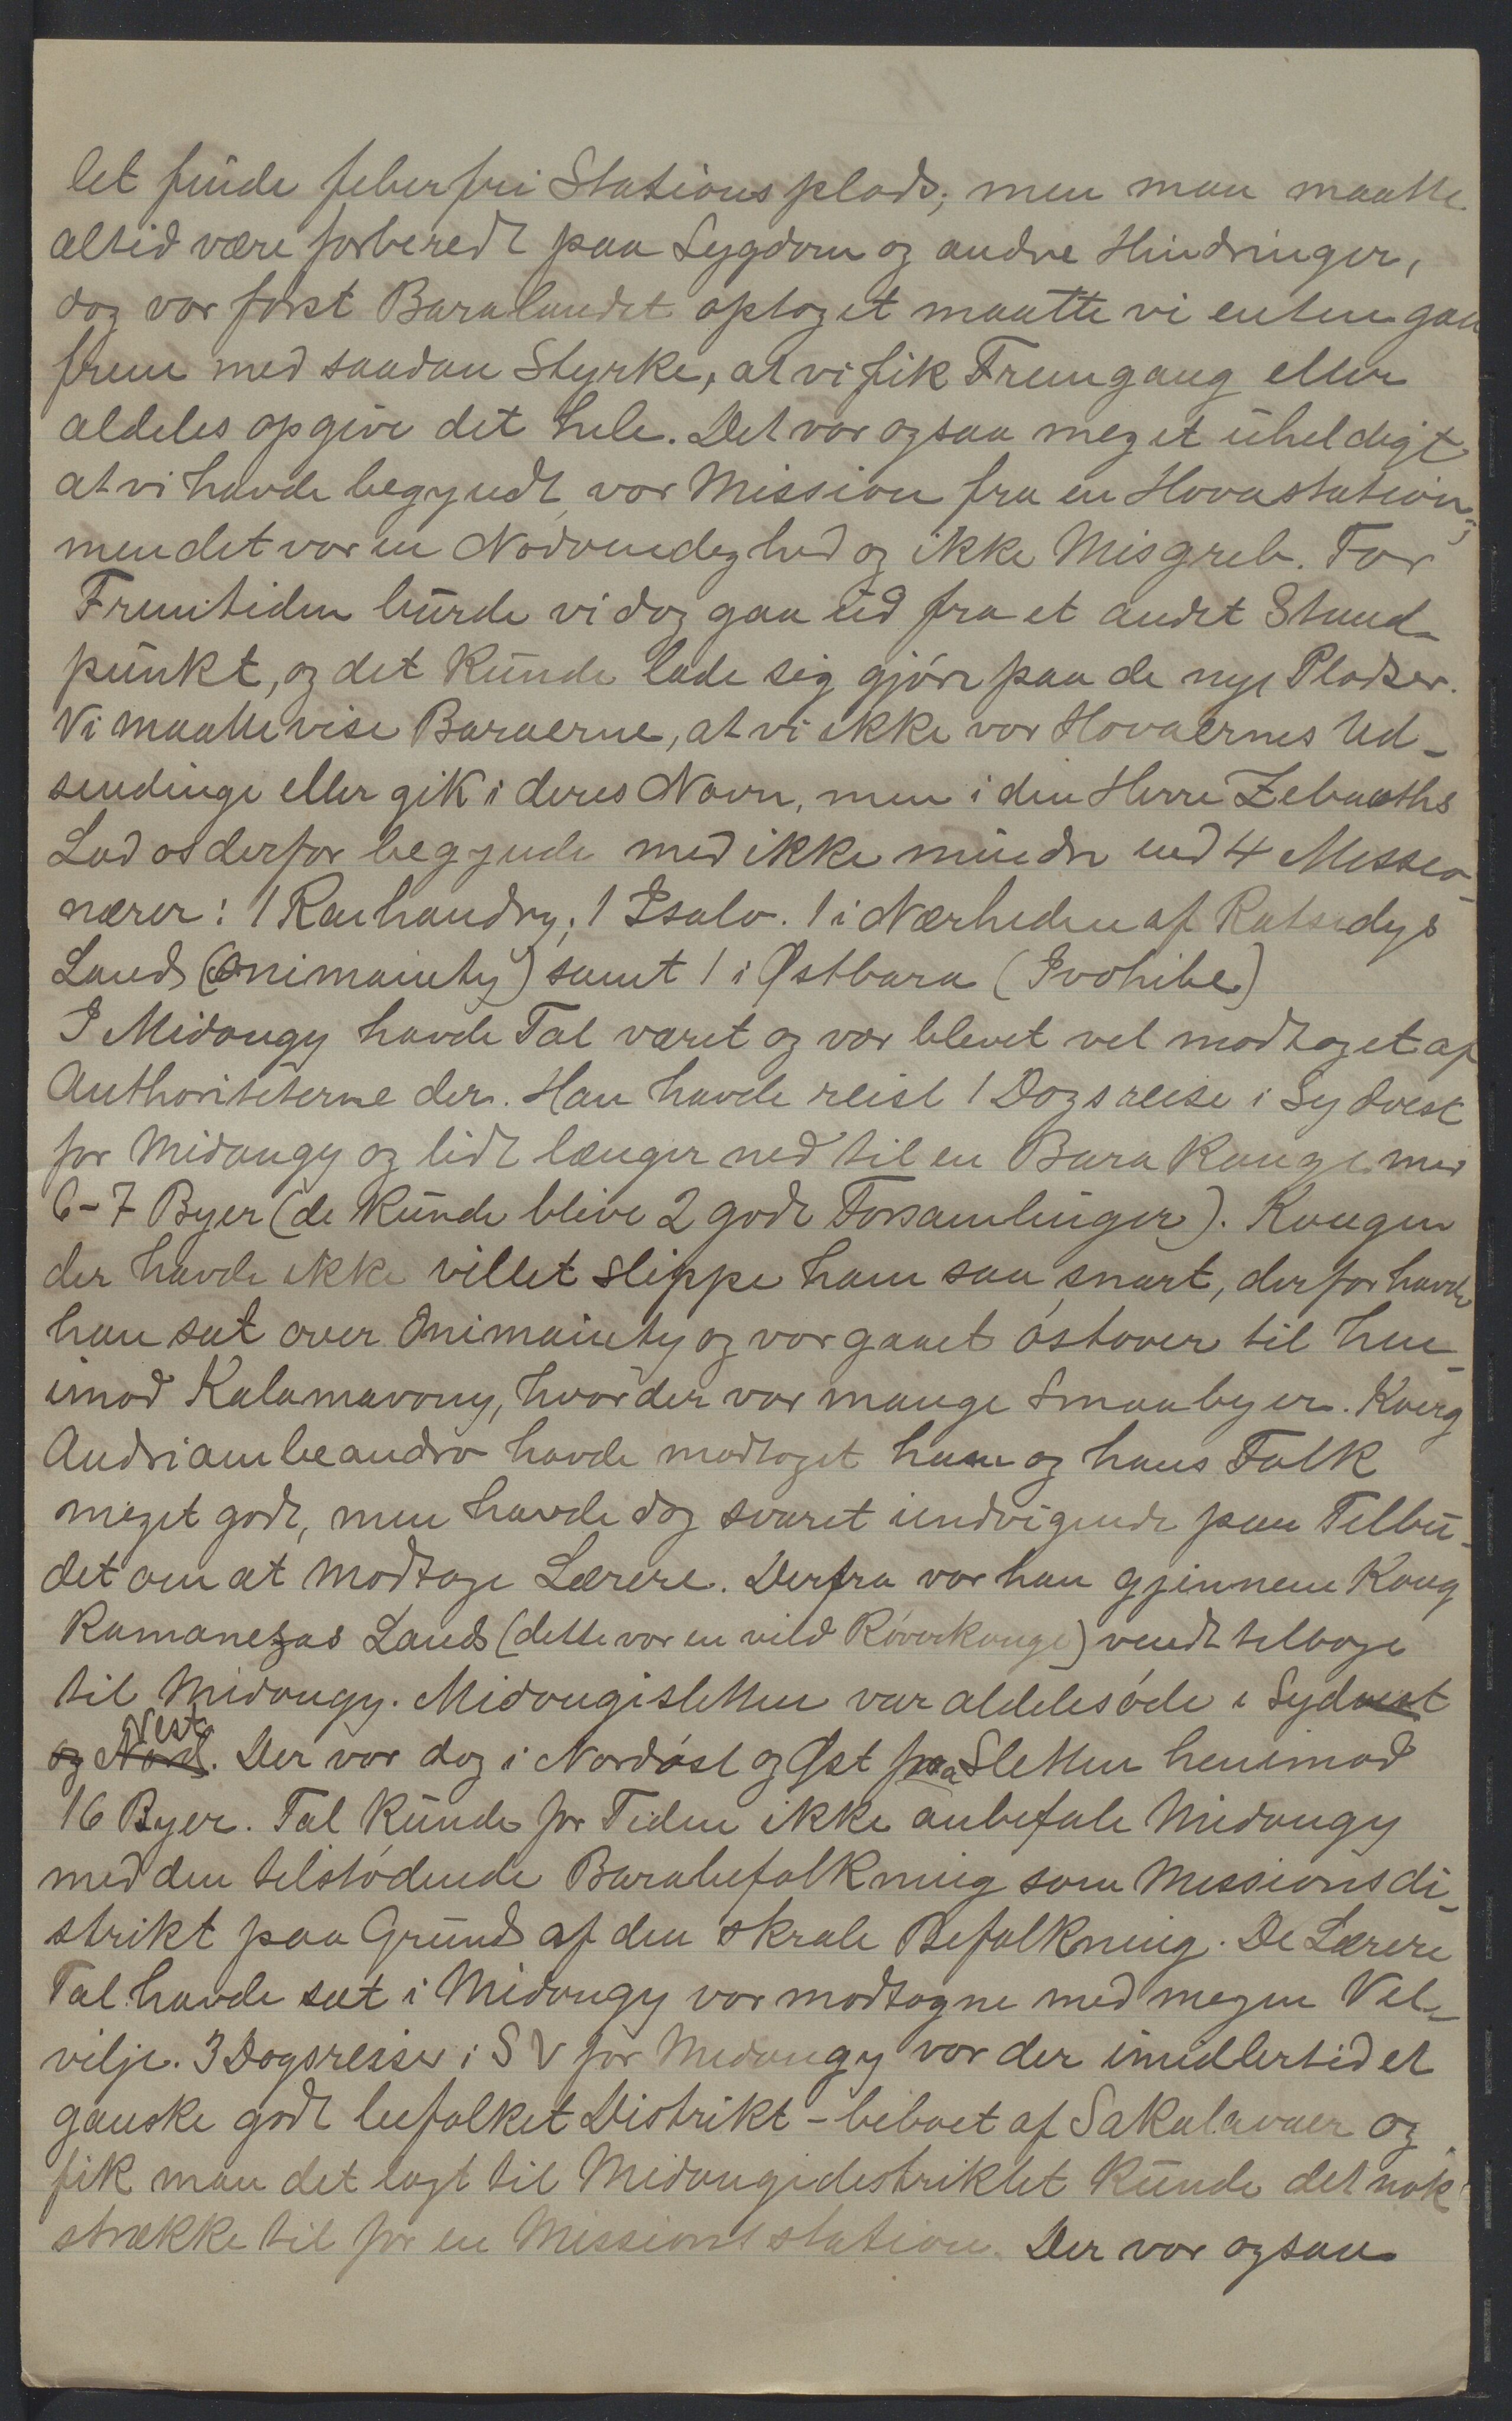 let finde feberfri Stationsplads; men man maatte
altid være forberedt paa Sygdom og andre Hindringer,
dog var først Baralandet optaget maatte vi enten gaa
frem med saadan Styrke, at vi fik Fremgang eller
aldeles opgive det hele. Det var ogsaa meget uheldigt,
at vi havde begyndt vor Mission fra en Hovastation;
men det var en Nødvendighed og ikke Misgreb. For
Fremtiden burde vi dog gaa ud fra et andet Stand-
punkt, og det kunde lade sig gjøre paa de nye Pladser.
Vi maatte vise Baraerne, at vi ikke var Hovaernes Ud-
sendinge eller gik i deres Navn, men i den Herre Zebaoths
Lad os derfor begynde med ikke mindre end 4 Missio-
nærer: 1 Ranhandry; 1 Isalo. 1 i Nærheden af Ratsidys
Land (Onimainty) samt 1 i Østbara (Ivohibe)
I Midongy havde Tal været og var blevet vel modtaget af
Authoriteterne der. Han havde reist 1 Dagsreise i Sydvest
for Midongy og lidt længer ned til en Bara Konge med
6-7 Byer (de kunde blive 2 gode Forsamlinger). Kongen
der havde ikke villet slippe ham saa snart, derfor havde
han sat over Onimainty og var gaaet østover til hen-
imod Kalamavony, hvor der var mange Smaabyer. Kong
Andriambeandro havde modtaget ham og hans Folk
meget godt, men havde dog svaret undvigende paa Tilbu-
det om at modtage Lærere. Derfra var han gjennem Kong
Ramanezas Land (dette var en vild Røverkonge) vendt tilbage
til Midongy. Midongisletten var aldeles øde i Sydvest
og Nord Vest. Der var dog i Nordøst og Øst paa Sletten henimod
16 Byer. Tal kunde for Tiden ikke anbefale Midongy
med den tilstødende Barabefolkning som Missionsdi-
strikt paa Grund af den skrale Befolkning. De Lærere
Tal havde sat i Midongy var modtagne med megen Vel-
vilje. 3 Dagsreiser i SV for Midongy var der imidlertid et
ganske godt befolket Distrikt - beboet af Sakalavaer og
fik man det lagt til Midongidistriktet kunde det nok
strække til for en Missionsstation. Der var ogsaa